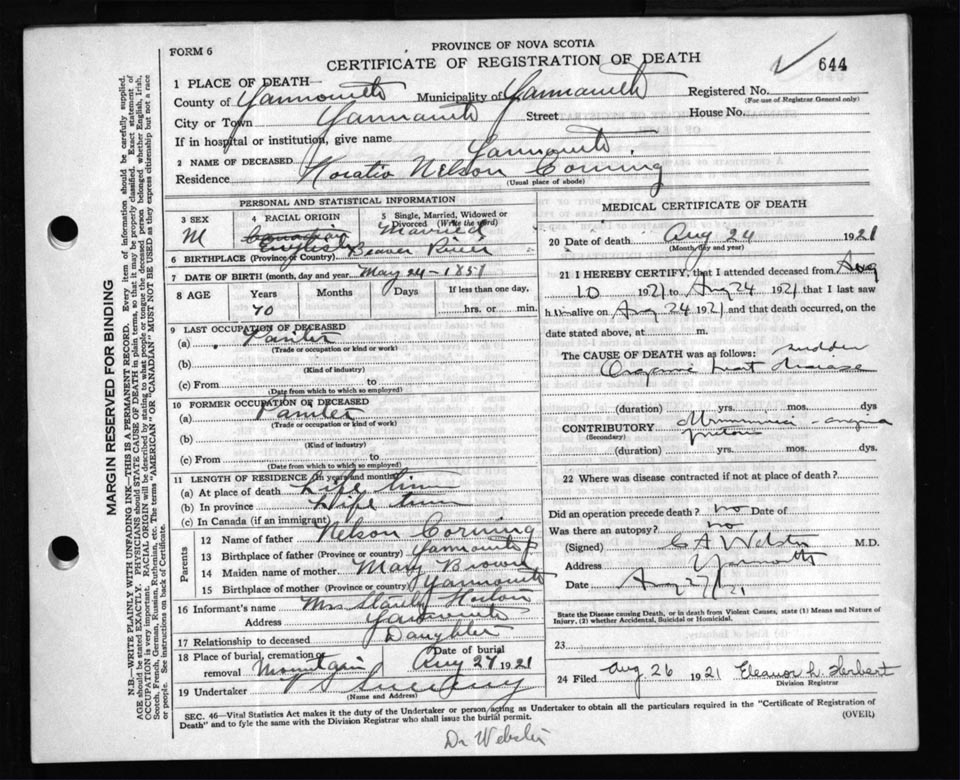 FORM 6
PROVINCE OF NOVA SCOTIA
CERTIFICATE OF REGISTRATION OF DEATH
644
1 PLACE OF DEATH—
County of Yarmouth Municipality of Yarmouth Registered No.
(For use of Registrar General only)
City or Town Yarmouth Street House No.
If in hospital or institution, give name
Yarmouth
2 NAME OF DECEASED Horatio Nelson Corning
Residence
(Usual place of abode)
PERSONAL AND STATISTICAL INFORMATION
3 SEX M
4 RACIAL ORIGIN Canadian English
5 Single, Married, Widowed or Divorced (Write the word) Married
6 BIRTHPLACE (Province or Country) Beaver River
7 DATE OF BIRTH (month, day and year) May 24-1851
8 AGE Years Months Days If less than one day,
70 hrs. or min.
9 LAST OCCUPATION OF DECEASED
(a) Painter
(Trade or occupation or kind of work)
(b)
(Kind of industry)
(c) From to
(Date from which to which so employed)
10 FORMER OCCUPATION OF DECEASED
(a) Painter
(Trade or occupation or kind of work)
(b)
(Kind of industry)
(c) From to
(Date from which to which so employed)
11 LENGTH OF RESIDENCE (in years and months)
(a) At place of death Life time
(b) In province Life time
(c) In Canada (if an immigrant)
Parents
12 Name of father Nelson Corning
13 Birthplace of father (Province or country) Yarmouth
14 Maiden name of mother Mary Brown
15 Birthplace of mother (Province or country) Yarmouth
16 Informant's name Mrs Stanley Horton
Address Yarmouth
17 Relationship to deceased Daughter
18 Place of burial, cremation or removal Mountain Date of burial Aug 27 1921
19 Undertaker V S Sweeny
(Name and Address)
MEDICAL CERTIFICATE OF DEATH
20 Date of death Aug 24 1921
(Month, day and year)
21 I HEREBY CERTIFY, that I attended deceased from Aug
10 1921 to Aug 24 1921 that I last saw
him alive on Aug 24 1921 and that death occurred, on the
date stated above, at m.
The CAUSE OF DEATH was as follows: sudden
Organic heart disease
(duration) yrs. mos. dys
CONTRIBUTORY angina
(Secondary) pectoris
(duration) yrs. mos. dys.
22 Where was disease contracted if not at place of death?
Did an operation precede death? no Date of
Was there an autopsy? no
(Signed) C A Webster M.D.
Address Yarmouth
Date Aug 27/21
State the Disease causing Death, or in death from Violent Causes, state (1) Means and Nature of Injury, (2) whether Accidental, Suicidal or Homicidal.
23
24 Filed Aug 26 1921 Eleanor L. Herbert
Division Registrar
SEC. 46—Vital Statistics Act makes it the duty of the Undertaker or person acting as Undertaker to obtain all the particulars required in the "Certificate of Registration of
Death" and to fyle the same with the Division Registrar who shall issue the burial permit.
(OVER)
Dr Webster
MARGIN RESERVED FOR BINDING
N.B.—WRITE PLAINLY WITH UNFADING INK—THIS IS A PERMANENT RECORD. Every item of information should be carefully supplied.
AGE should be stated EXACTLY. PHYSICIANS should STATE CAUSE OF DEATH in plain terms, so that it may be properly classified. Exact statement of
OCCUPATION is very important. RACIAL ORIGIN will be described by stating to what people or tongue the deceased person belonged whether English, Irish,
Scotch, French, German, Russian, Ruthenian, etc. The terms "AMERICAN" OR "CANADIAN" MUST NOT BE USED as they express citizenship but not a race
or people. See instructions on back of Certificate.